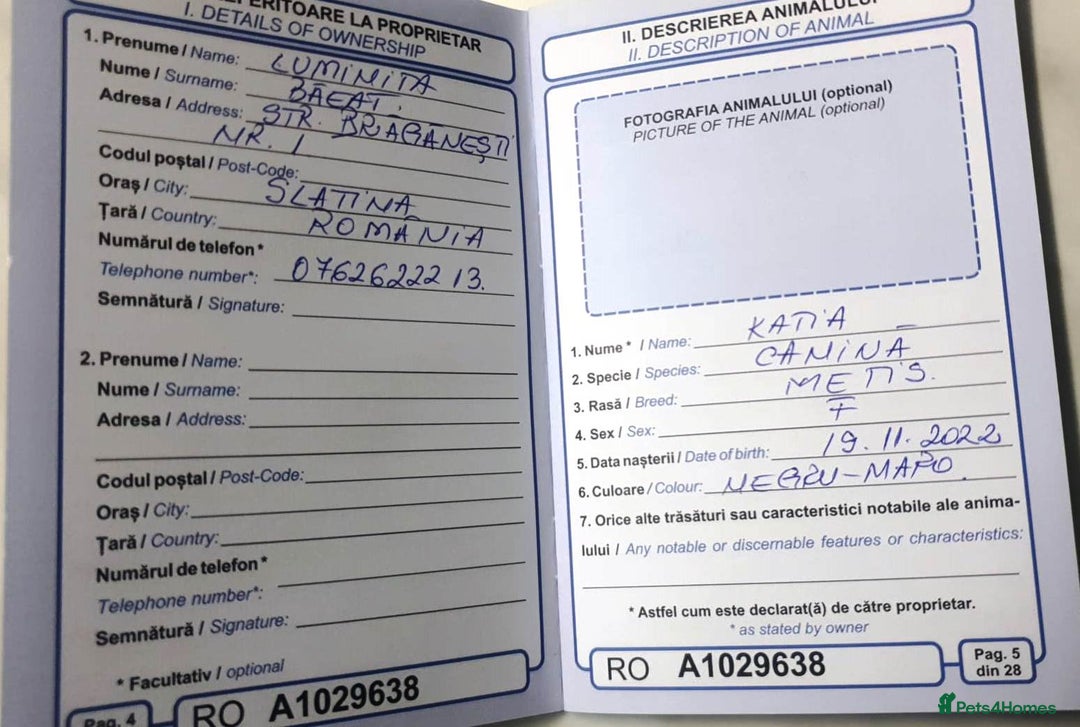 REFERITOARE LA PROPRIETAR
I. DETAILS OF OWNERSHIP
1. Prenume / Name: LUMINITA
Nume / Surname: BAEAT.
Adresa / Address: STR. BRAGANEȘTI
NR. 1
Codul poștal / Post-Code:
Oraș / City: SLATINA
Țară / Country: ROMÂNIA
Numărul de telefon *
Telephone number*: 0762622213.
Semnătură / Signature:
2. Prenume / Name:
Nume / Surname:
Adresa / Address:
Codul poștal / Post-Code:
Oraș / City:
Țară / Country:
Numărul de telefon *
Telephone number*:
Semnătură / Signature:
* Facultativ / optional
Pag. 4
RO A1029638
II. DESCRIEREA ANIMALULUI
II. DESCRIPTION OF ANIMAL
FOTOGRAFIA ANIMALULUI (optional)
PICTURE OF THE ANIMAL (optional)
1. Nume * / Name: KATIA
2. Specie / Species: CANINĂ
3. Rasă / Breed: METIS.
4. Sex / Sex: F
5. Data nașterii / Date of birth: 19.11.2022
6. Culoare / Colour: NEGRU-MARO.
7. Orice alte trăsături sau caracteristici notabile ale anima-
lului / Any notable or discernable features or characteristics:
* Astfel cum este declarat(ă) de către proprietar.
* as stated by owner
RO A1029638
Pag. 5
din 28
Pets4Homes